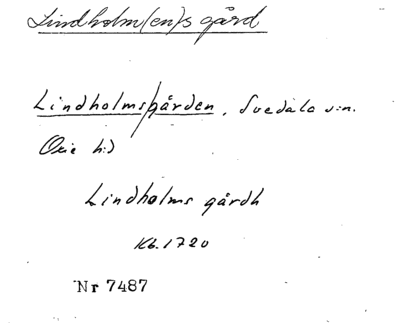 Lindholm(en)s gård
Lindholms/gården, Svedala s:n.
Oxie h:d
Lindholms gårdh
Kb. 1720
Nr 7487